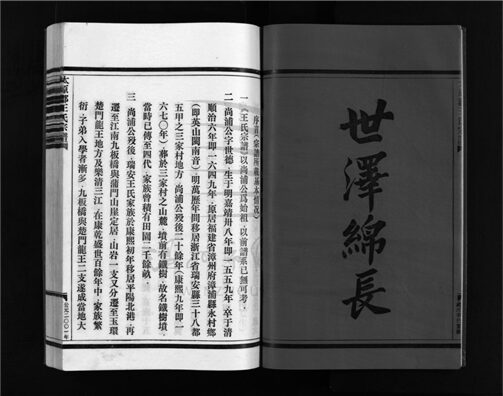 世澤綿長
序言（宗譜所載基本情況）
一 《王氏宗譜》以尚浦公爲始祖，以前譜系已無可考。
二 尚浦公字世德，生于明嘉靖卅八年即一五五九年，卒于清
順治六年即一六四九年，原居福建省漳州府漳浦縣水村鄉
（即英山閩南音）。明萬歷年間移居浙江省瑞安縣三十八都
五甲之三家村地方，尚浦公殁後二十餘年（康熙九年即一
六七〇年）葬於三家村之山麓，墳前有鐵樹，故名鐵樹墳，
當時已傳至四代，家族曾積有田園二千餘畝。
三 尚浦公殁後，瑞安王氏家族於康熙初年移居平陽北港，再
遷至江南九板橋與蒲門山崖定居，山岩一支又分遷至玉環
楚門龍王地方及樂清三江，在康乾盛世百餘年中，家族繁
衍，子弟入學者漸多，九板橋與楚門龍王二支遂成當地大
太原郡王氏宗譜
公元二〇〇一年